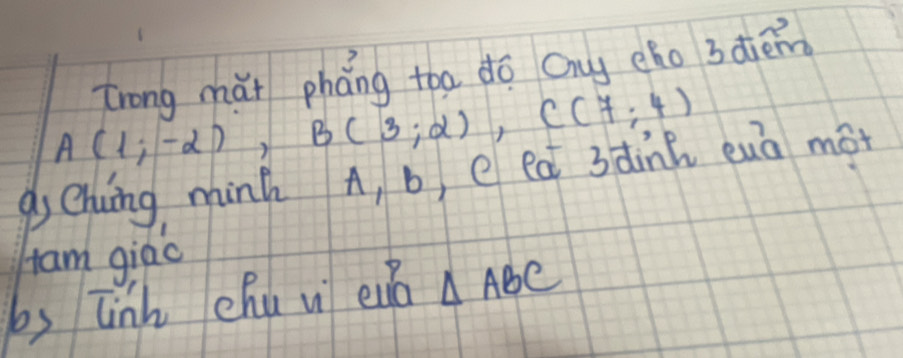 Trong mặt phẳng tọa độ Oxy cho 3 điểm
A(1;-2), B(3;2), C(7;4)
a, Chứng minh A, b, C là 3 đỉnh của một
tam giác
b, Tính chu vi của Δ ABC